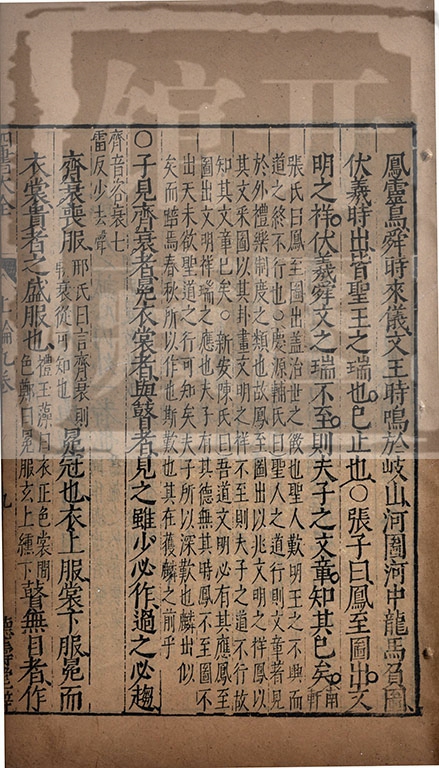 鳳靈鳥舜時來儀文王時鳴於岐山河圖河中龍馬負圖
伏羲時出皆聖王之瑞也已止也○張子曰鳳至圖出文
明之祥伏羲舜文之瑞不至則夫子之文章知其已矣南軒
張氏曰鳳至圖出蓋治世之徵也聖人歎明王之不興而
道之終不行也○慶源輔氏曰聖人之道行則文章著見
於外禮樂制度之類也故鳳至圖出以兆文明之祥鳳以
其文采圖以其卦畫文明之祥不至則夫子之道不行故
知其文章已矣○新安陳氏曰吾道文明必有其應鳳至
圖出文明祥瑞之應也夫子有其德無其時鳳不至圖不
出天未欲聖道之行可知矣夫子所以深歎也麟出似
矣而踣焉春秋所以作也斯歎也其在獲麟之前乎
○子見齊衰者冕衣裳者與瞽者見之雖少必作過之必趨
齊音咨衰七
雷反少去聲
齊衰喪服
邢氏曰言齊衰則
斬衰從可知也
冕冠也衣上服裳下服冕而
衣裳貴者之盛服也
禮玉藻曰衣正色裳間
色鄭曰冕服玄上纁下
瞽無目者作
四書大全
上論九卷
九